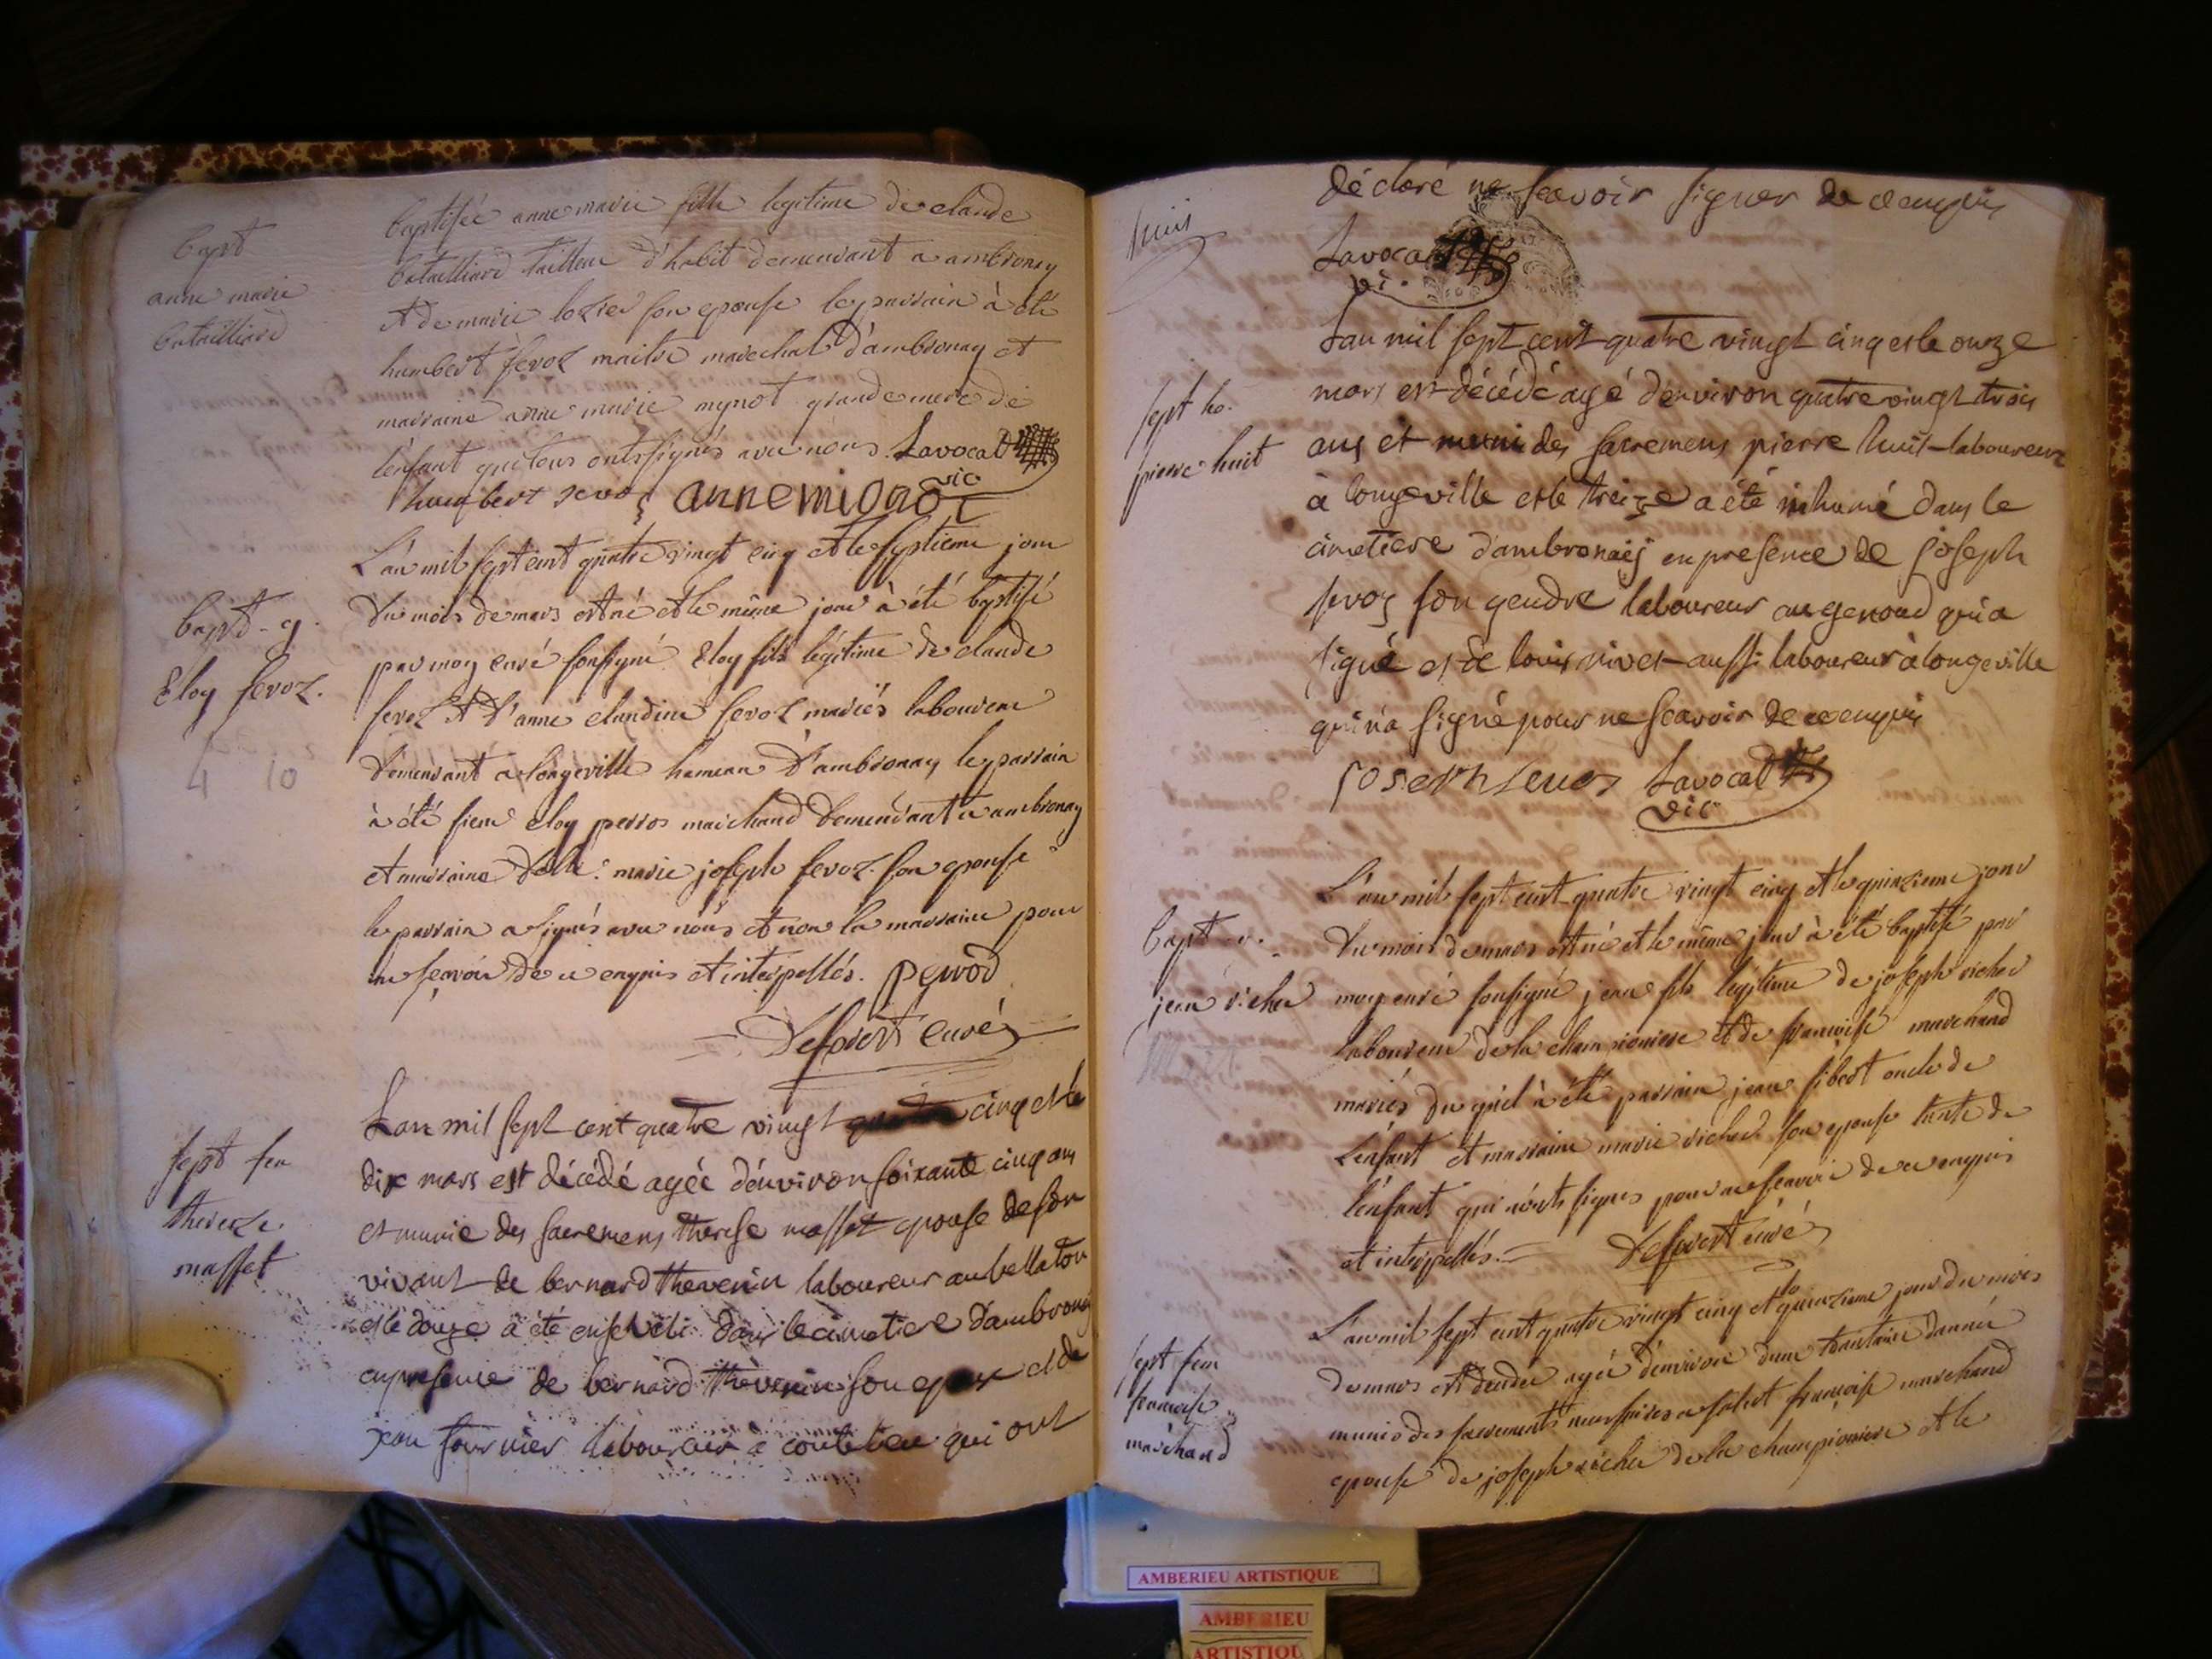 bapt
anne marie
batailliard
baptisée anne marie fille legitime de claude
batailliard tailleur d'habit demeurant a ambronay
et de marie lozier son epouse le parrain à été
humbert sevoz maitre marechal d'ambronay et
marraine anne marie mynot grande mere de
l'enfant qui tous onts signés avec nous Lavocat
vic
humbert sevoz annemignot
bapt. g.
Eloy sevoz.
4 10
L'an mil sept cent quatre vingt cinq et le septieme jour
du mois de mars est né et le même jour à été baptisé
par moy curé sousigné Eloy fils légitime de claude
sevoz et d'anne claudine sevoz mariés laboureur
demeurant a longeville hameau d'ambronay le parrain
à été sieur eloy perrod marchand demeurant a ambronay
et marraine marie joseph sevoz son epouse
le parrain a signés avec nous et non la marraine pour
ne scavoir de ce enquis et interpellés. perrod
curé
sept fem
therese
masset
Lan mil sept cent quatre vingt cinq et le
dix mars est décédé agée d'environ soixante cinq ans
et munie des sacremens therese masset epouse de son
vivant de bernard thevenin laboureur au bellaton
et le douze a été enseveli dans le cimetiere d'ambronay
en presence de bernard thevenin son epoux et de
jean fournier laboureur à coutelieu qui ont
huit
déclaré ne scavoir signer de ce enquis
Lavocat
vi.
sept ho.
pierre huit
Lan mil sept cent quatre vingt cinq et le onze
mars est décédé agé denviron quatre vingt trois
ans et muni des sacremens pierre huit laboureur
à longeville et le treize a été inhumé dans le
cimetiere d'ambronais en presence de joseph
sevoz son gendre laboureur au genoud qui a
signé et de louis vivet aussi laboureur à longeville
qui n'a signé pour ne scavoir de ce enquis
Joseph sevos Lavocat
vic
bapt.
jean richer
L'an mil sept cent quatre vingt cinq et le quinzieme jour
du mois de mars est né et le même jour à été baptisé par
moy curé sousigné jean fils légitime de joseph richer
laboureur de la championiere et de françoise marchand
mariés du quel à été parrain jean sibert oncle de
L'enfant et marraine marie richer son epouse tante de
l'enfant qui n'onts signés pour ne scavoir de ce enquis
et interpellés. curé
sept fem
francoise
marchand
L'an mil sept cent quatre vingt cinq et le quinzieme jour du mois
de mars est decedée agée d'environ d'une trentaine d'année
munie des sacrements françoise marchand
epouse de joseph richer de la championiere et le
AMBERIEU ARTISTIQUE
AMBERIEU
ARTISTIQU